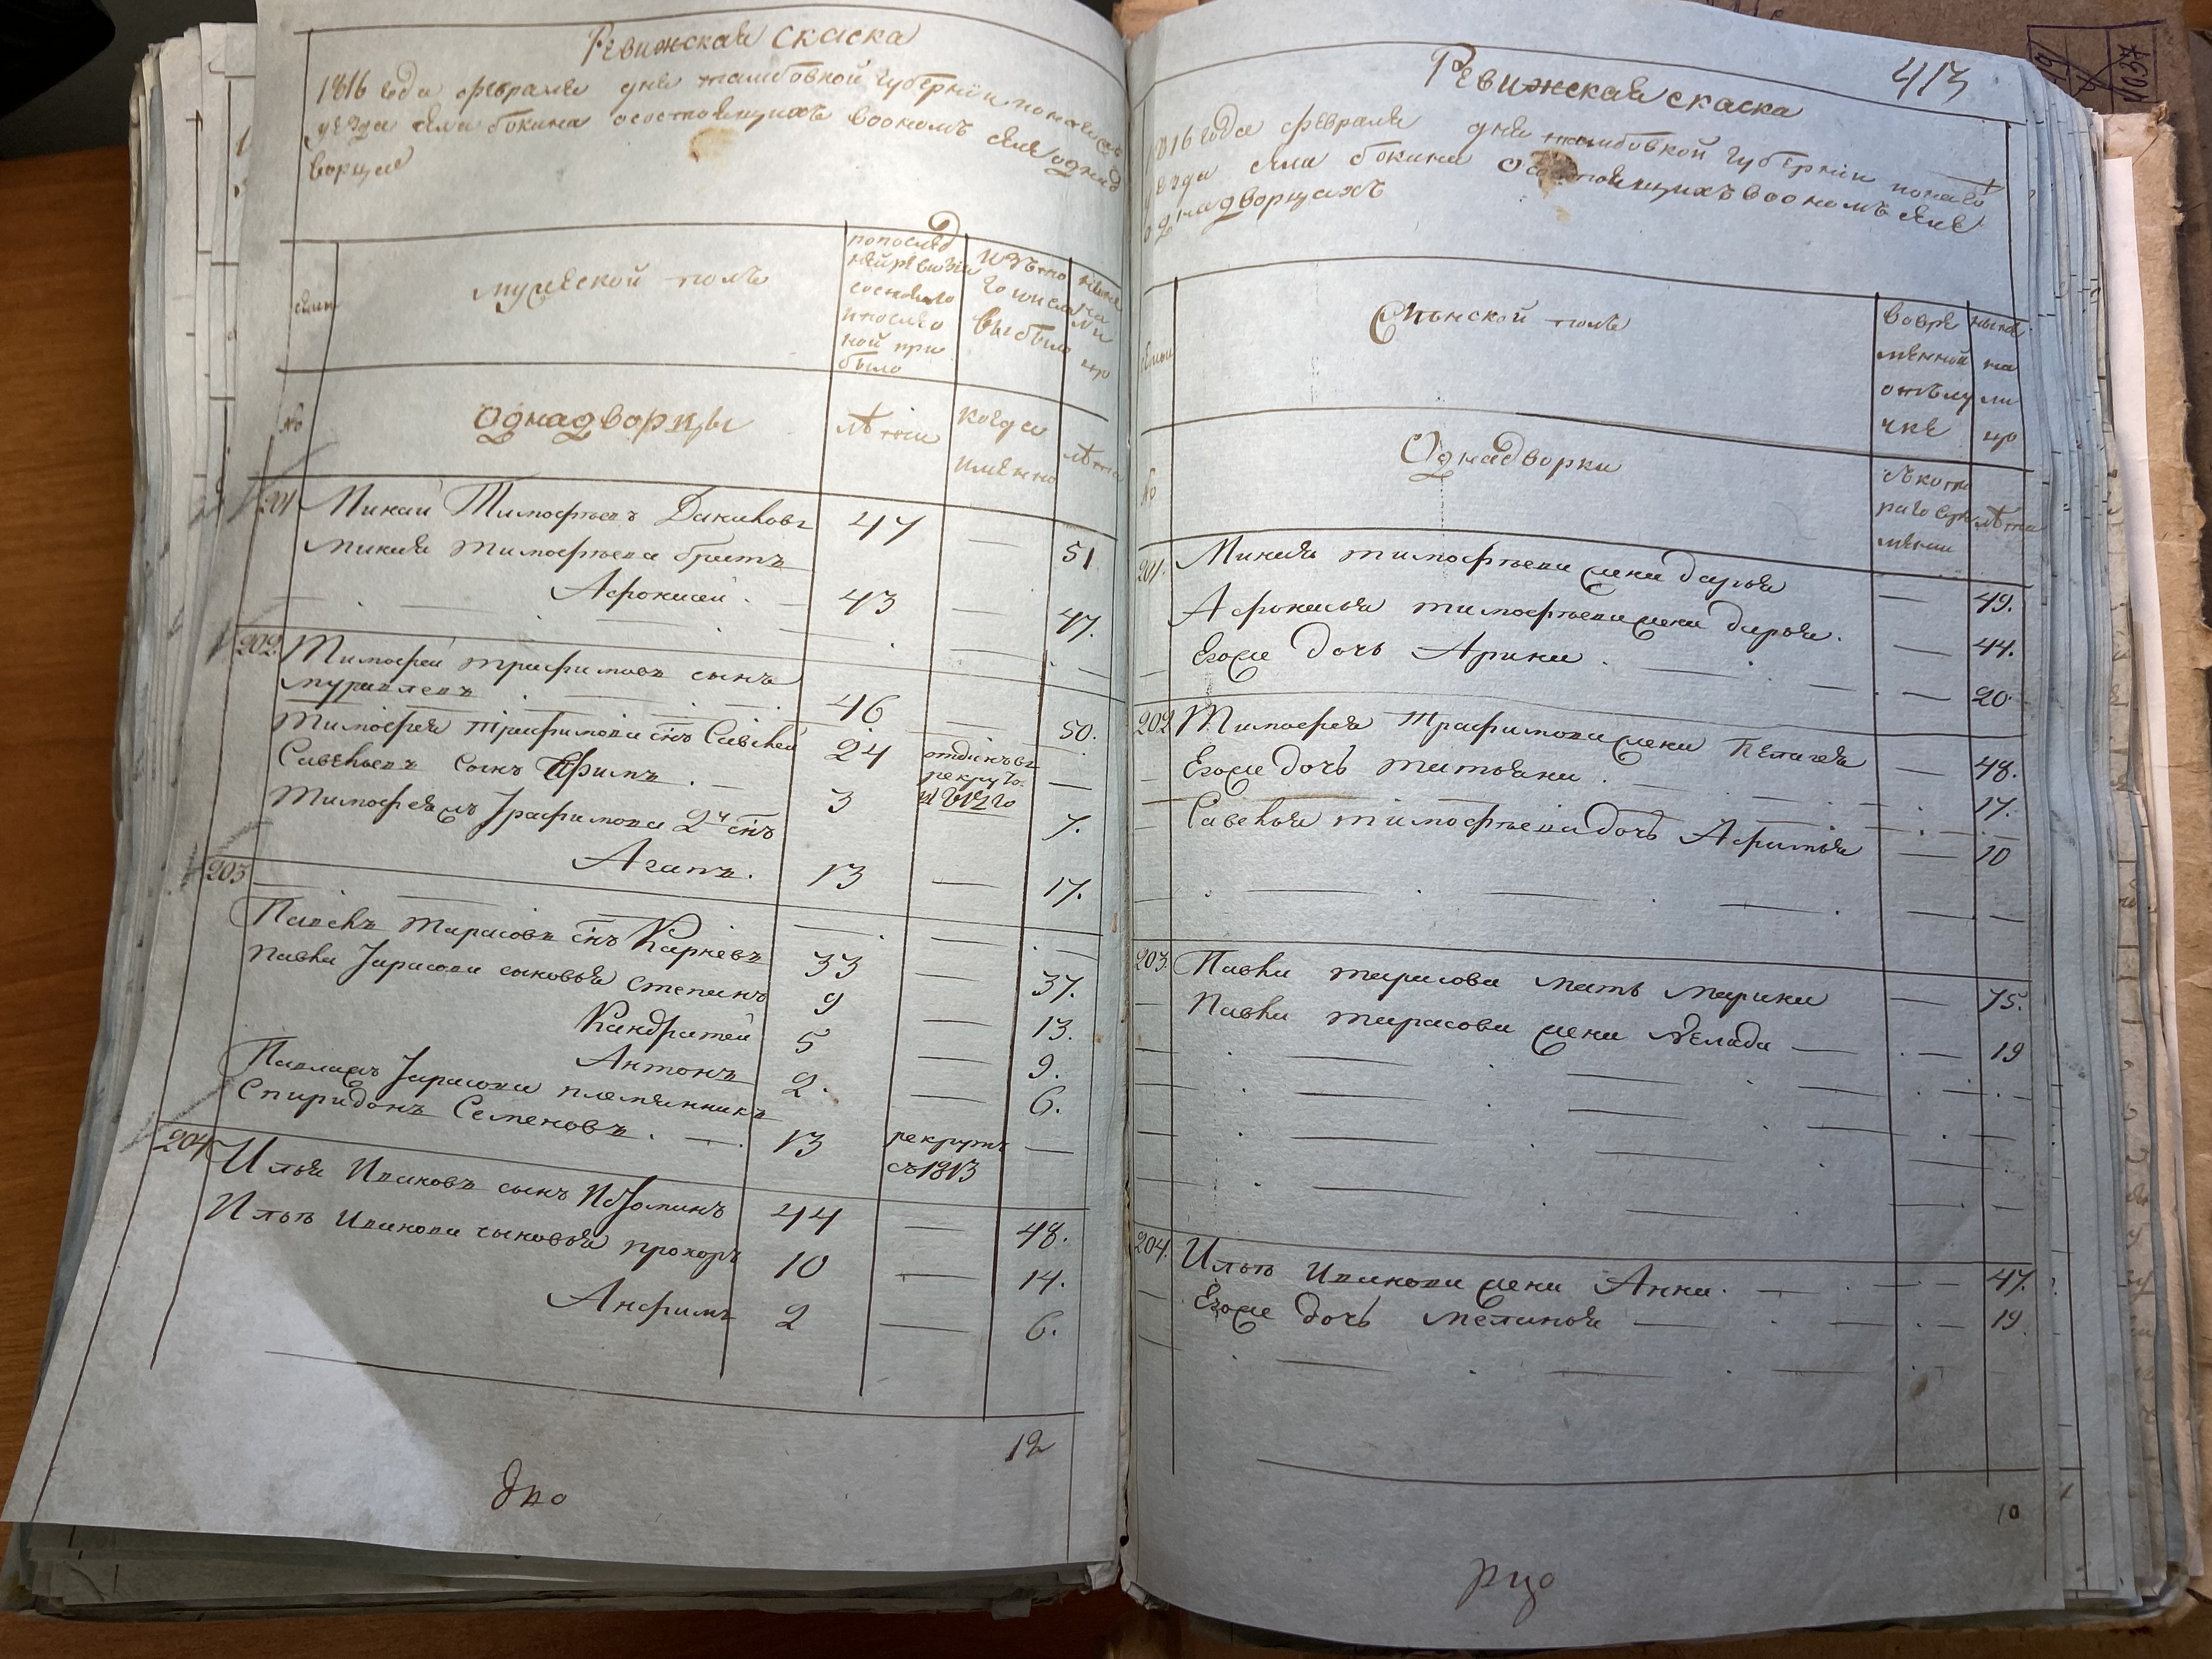 Ревижская скаска
1816 года февраля дня тамбовкой губернiи
уезда села бокина осостоящихъ воономъ селе однад
ворцах
семьи
мужеской полъ
попослед
ней ревизiи
состояло
и после
ной при
было
изъ то
го числа
выбыло
ныне
на
ли
цо
№
Однадворцы
лѣта
когда
имянно
лѣта
201 Минай Тимофеевъ Даниловъ 47 — 51
Миная тимофеева братъ
Афонасей 43 — 47.
202. Тимофей трафимовъ сынъ
муравлевъ 46 — 50.
Тимофея трафимова снъ Савелей 24 отданъ въ рекруты —
Савельевъ сынъ Ефимъ 3 7.
Тимофеяжъ Трафимова 2й снъ
Агапъ. 13 — 17.
203
Павелъ тарасовъ снъ Карнѣвъ 33 — 37.
Павла Тарасова сыновья степанъ 9 — 13.
Кандратей 5 — 9.
Антонъ 2. — 6.
Павлажъ Тарасова племянникъ
Спиридонъ Семеновъ. 13 рекрутъ —
съ 1813
204 Илья Ивановъ сынъ 44 — 48.
Ильи Иванова сыновья прохоръ 10 — 14.
Анфимъ 2 — 6.
12
413
Ревижская скаска
1816 года февраля дня тамбовкой губернiи
уезда села бокина осостоящихъ воономъ селе
однадворцахъ
семьи
Женской полъ
вовре
менной
отълу
чке
ныне
на
ли
цо
№
Однадворки
съкото
раго вре
мени
лѣта
201. Миная тимофеева жена дарья — 49.
Афонасья тимофеева жена дарья. — 44.
Егоже дочь Арина — 20.
202 Тимофея Трафимова жена Пелагея — 48.
Егоже дочь татьяна 17.
Савелья тимофеева дочь Афимья — 10
203. Павла тарасова мать марина — 75.
Павла тарасова жена — 19
204. Ильи Иванова жена Анна — 47.
Егоже дочь — 19.
10